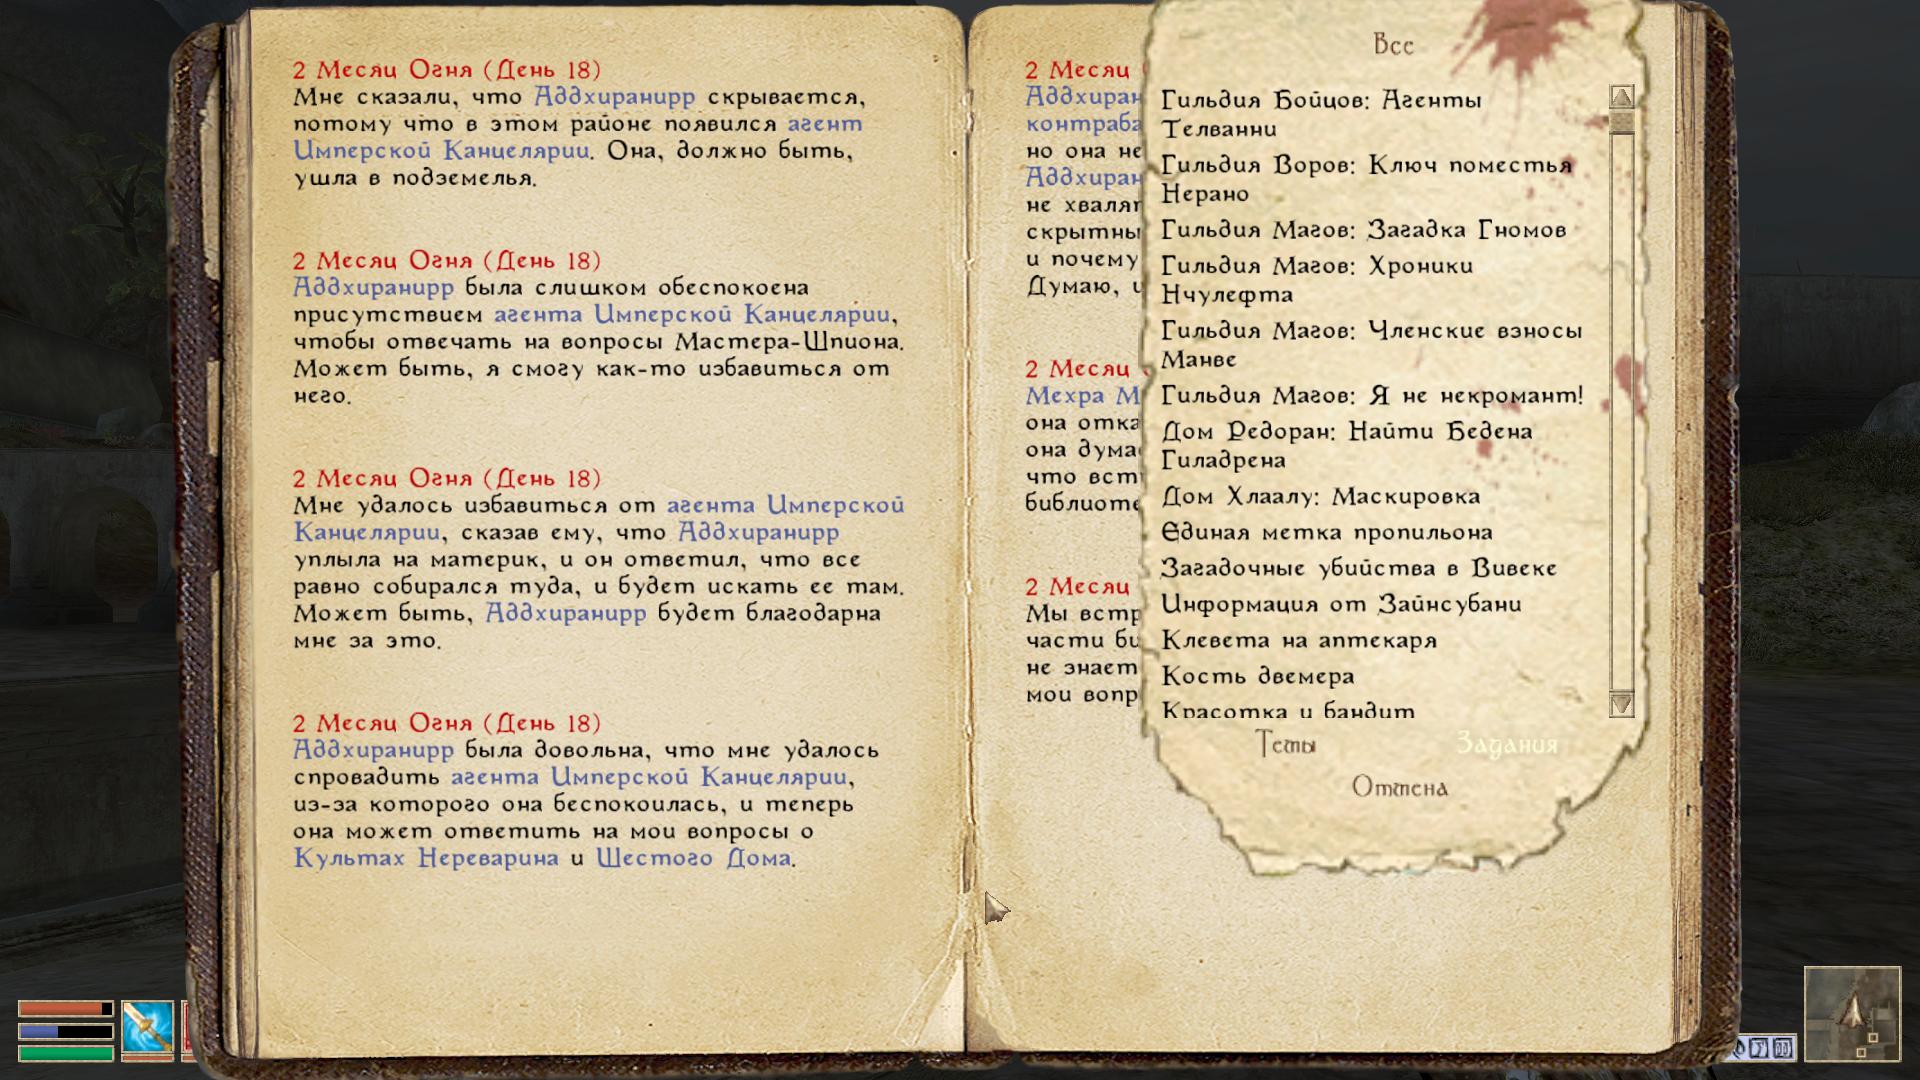 2 Месяц Огня (День 18)
Мне сказали, что Аддхиранирр скрывается,
потому что в этом районе появился агент
Имперской Канцелярии. Она, должно быть,
ушла в подземелья.
2 Месяц Огня (День 18)
Аддхиранирр была слишком обеспокоена
присутствием агента Имперской Канцелярии,
чтобы отвечать на вопросы Мастера-Шпиона.
Может быть, я смогу как-то избавиться от
него.
2 Месяц Огня (День 18)
Мне удалось избавиться от агента Имперской
Канцелярии, сказав ему, что Аддхиранирр
уплыла на материк, и он ответил, что все
равно собирался туда, и будет искать ее там.
Может быть, Аддхиранирр будет благодарна
мне за это.
2 Месяц Огня (День 18)
Аддхиранирр была довольна, что мне удалось
спровадить агента Имперской Канцелярии,
из-за которого она беспокоилась, и теперь
она может ответить на мои вопросы о
Культах Нереварина и Шестого Дома.
2 Месяц
Аддхиран
контраба
но она не
Аддхиран
не хвалят
скрытны
и почему
Думаю,
2 Месяц
Мехра М
она отка
она дума
что вст
библиоте
2 Месяц
Мы встр
части би
не знает
мои вопр
Все
Гильдия Бойцов: Агенты
Телванни
Гильдия Воров: Ключ поместья
Нерано
Гильдия Магов: Загадка Гномов
Гильдия Магов: Хроники
Нчулефта
Гильдия Магов: Членские взносы
Манве
Гильдия Магов: Я не некромант!
Дом Редоран: Найти Бедена
Гиладрена
Дом Хлаалу: Маскировка
Единая метка пропильона
Загадочные убийства в Вивеке
Информация от Зайнсубани
Клевета на аптекаря
Кость двемера
Красотка и бандит
Темы Задания
Отмена